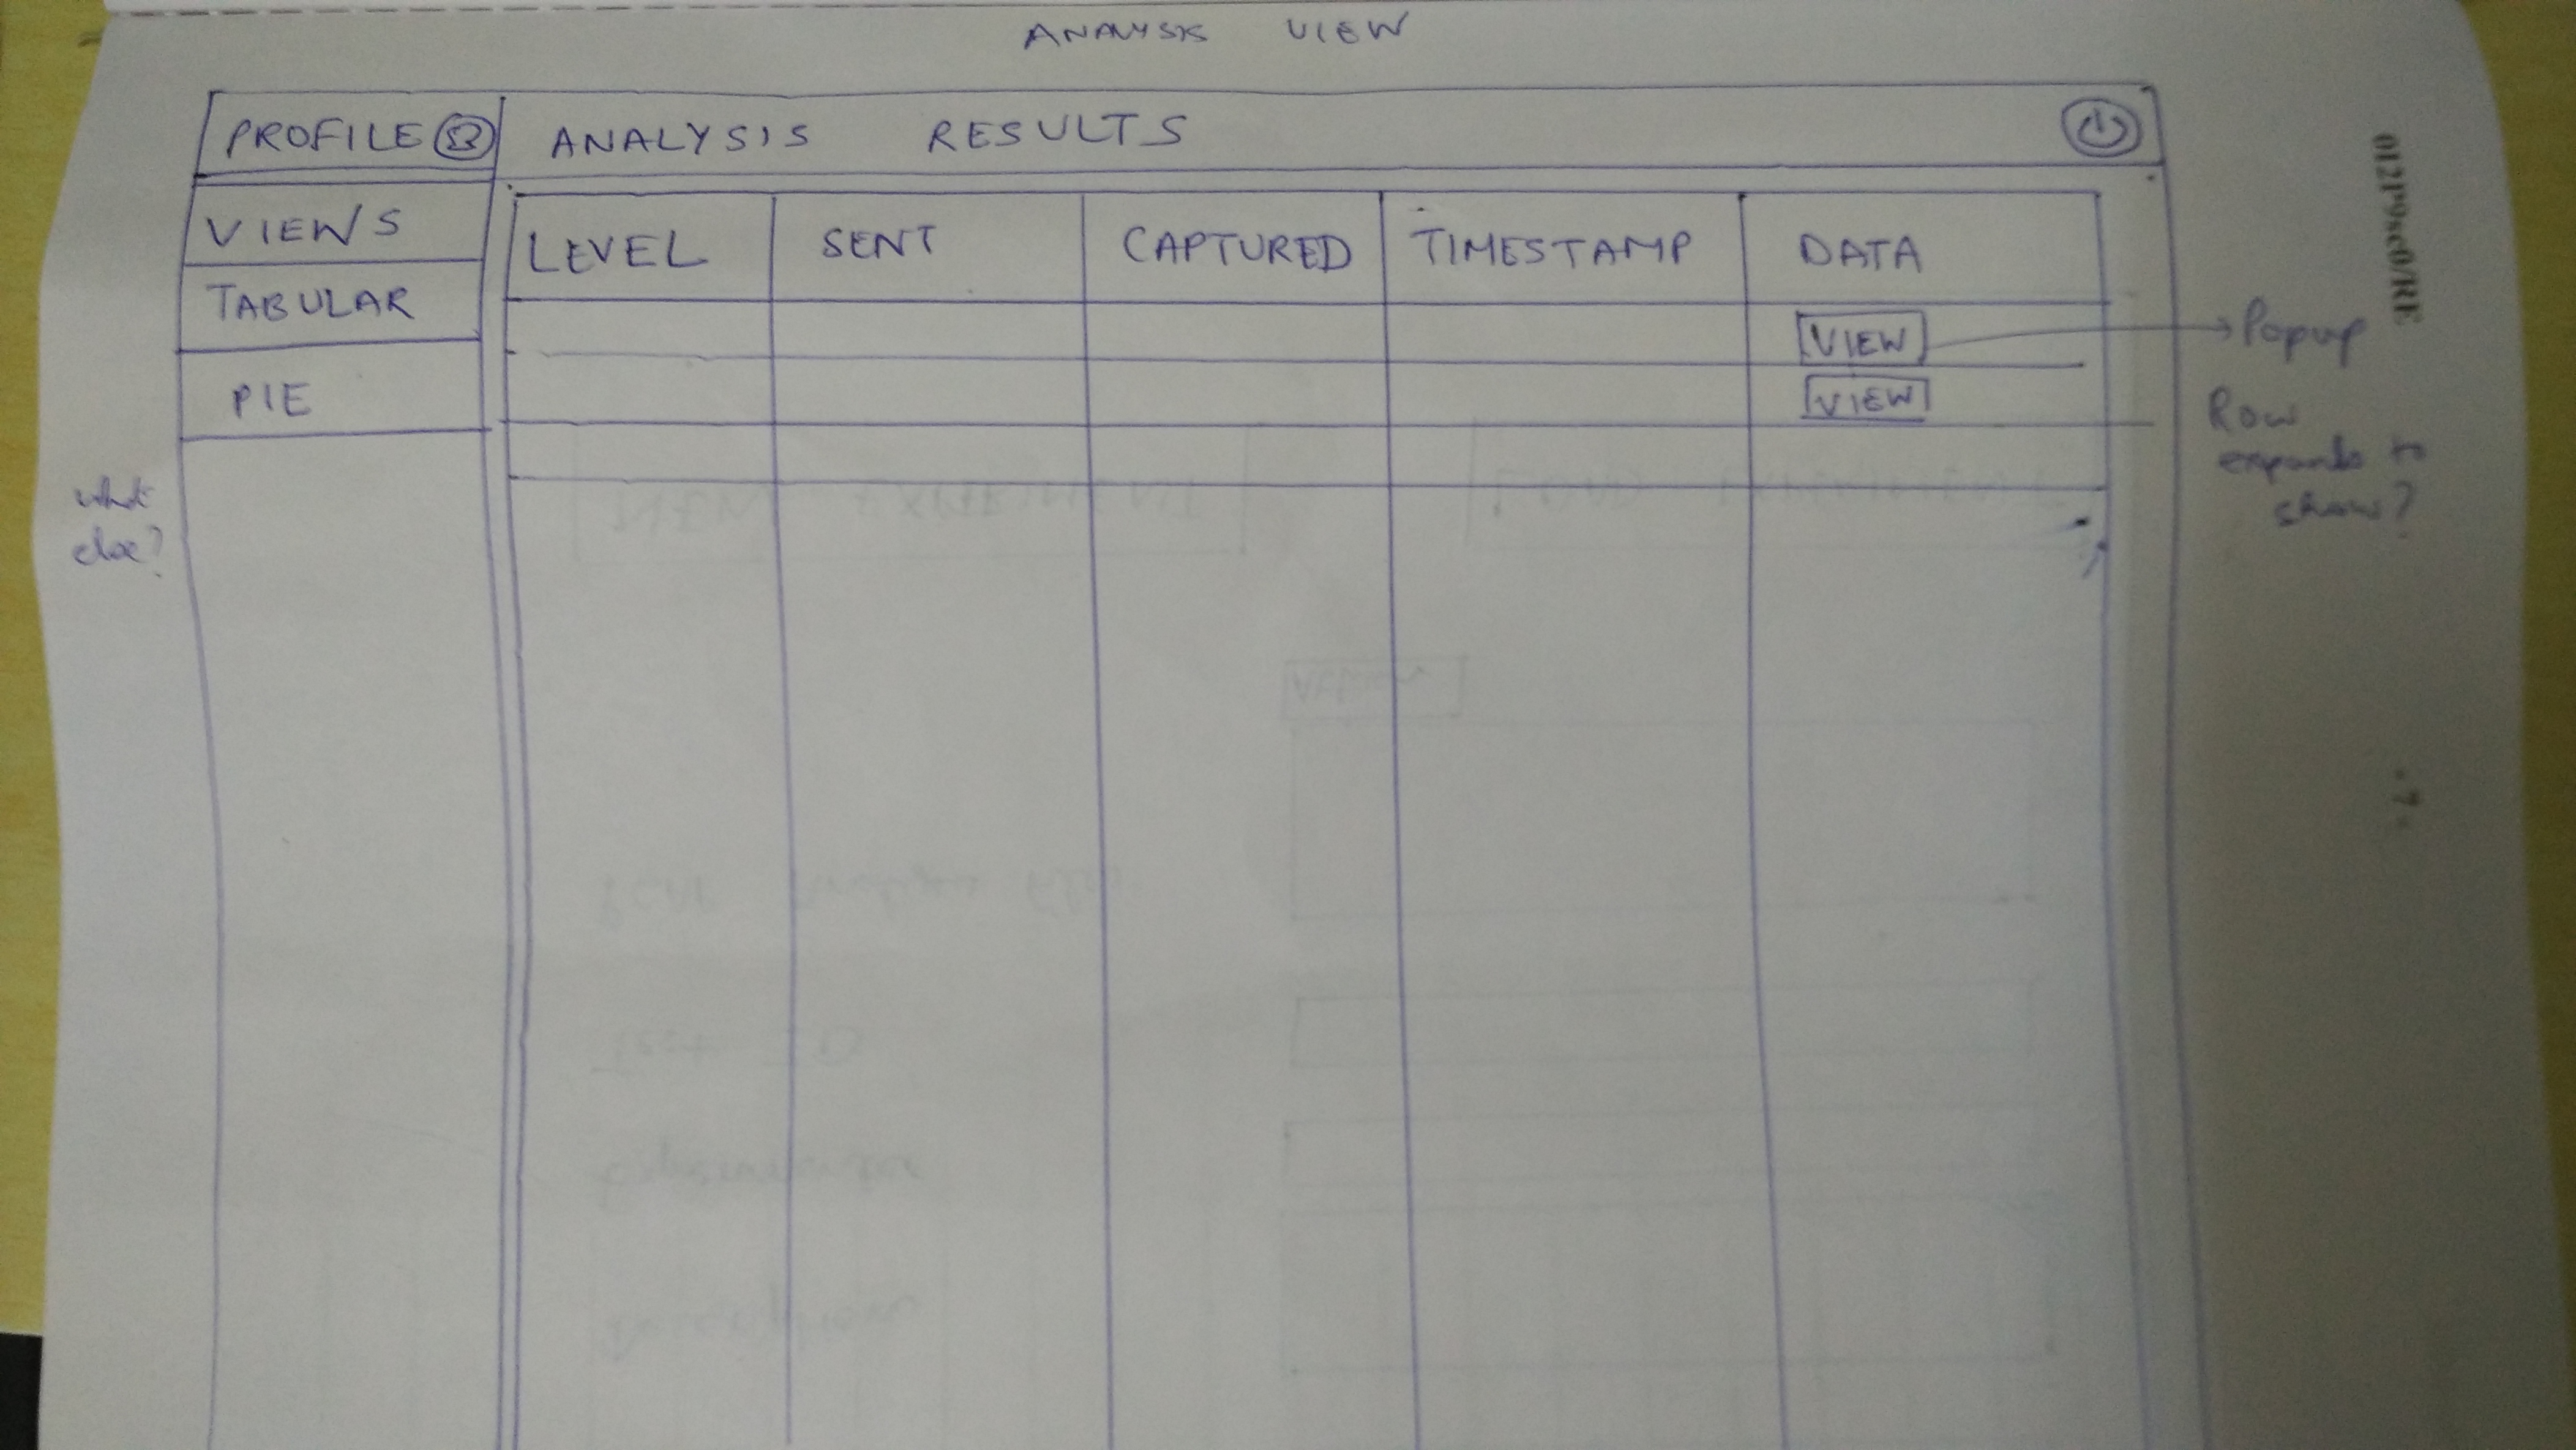 ANALYSIS VIEW
PROFILE ANALYSIS RESULTS
VIEWS
TABULAR
PIE
what
else?
LEVEL SENT CAPTURED TIMESTAMP DATA
VIEW
VIEW
Popup
Row
expands to
show?